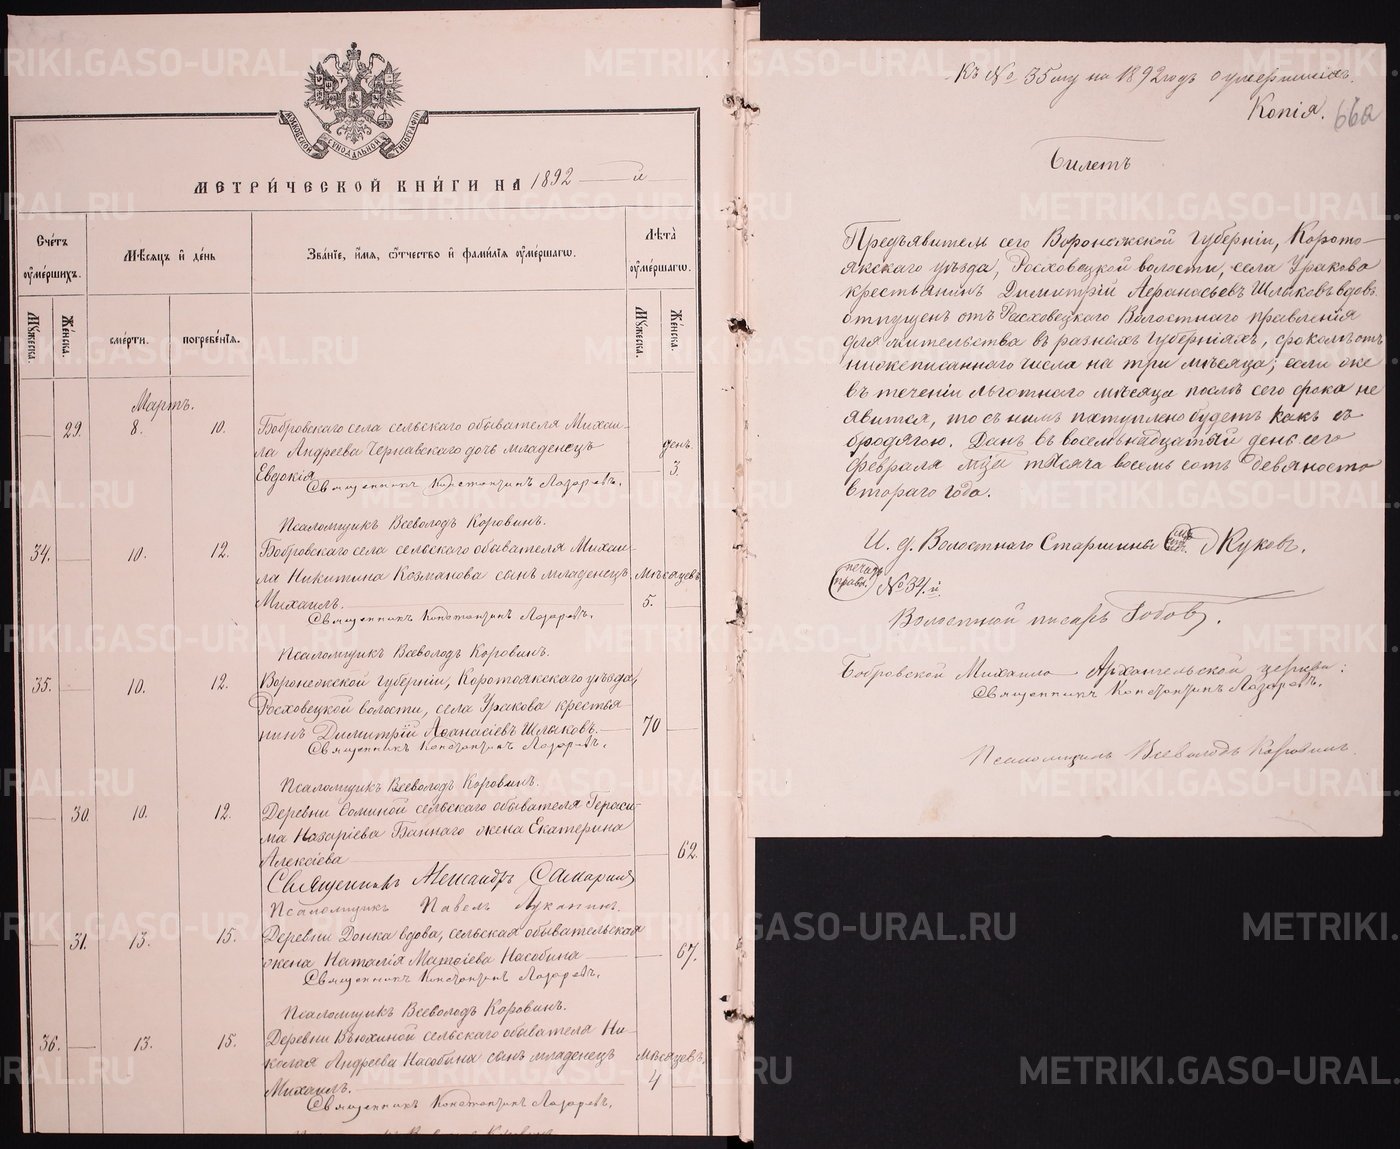 МОСКОВСКОЙ СѴНОДАЛЬНОЙ ТИПОГРАФІИ
МЕТРИ́ЧЕСКОЙ КНИ́ГИ НА 1892 й
Сче́тъ ᲂу҆ме́ршихъ.
Мѣ́сяцъ и҆ де́нь
Зва́ніе, и҆́мя, ѻ҆́тчество и҆ фами́лія ᲂу҆ме́ршагѡ.
Лѣ́та ᲂу҆ме́ршагѡ.
Мꙋ́жеска. Же́нска. сме́рти. погребе́нія. Мꙋ́жеска. Же́нска.
Мартъ.
29. 8. 10. Бобровскаго села сельскаго обывателя Михаи-
ла Андреева Чернавскаго дочь младенецъ день.
Евдокія 3
Священникъ Константинъ Лазаревъ.
Псаломщикъ Всеволодъ Коровинъ.
34. 10. 12. Бобровскаго села сельскаго обывателя Михаи-
ла Никитина Козманова сынъ младенецъ Мѣсяцевъ
Михаилъ. 5.
Священникъ Константинъ Лазаревъ.
Псаломщикъ Всеволодъ Коровинъ.
35. 10. 12. Воронежской губерніи, Коротоякскаго уѣзда,
Росховецкой волости, села Уракова крестья-
нинъ Димитрій Аѳанасіевъ Шлыковъ. 70
Священникъ Константинъ Лазаревъ.
Псаломщикъ Всеволодъ Коровинъ.
30. 10. 12. Деревни Соминой сельскаго обывателя Гераси-
ма Назаріева Баннаго жена Екатерина
Алексіева 62.
Священникъ Александръ
Псаломщикъ Павелъ Луканинъ.
31. 13. 15. Деревни Донка вдова, сельская обывательская
жена Наталія Матѳіева Насобина 67.
Священникъ Константинъ Лазаревъ.
Псаломщикъ Всеволодъ Коровинъ.
36. 13. 15. Деревни Вьюхиной сельскаго обывателя Ни-
колая Андреева Насобина сынъ младенецъ Мѣсяцевъ,
Михаилъ. 4
Священникъ Константинъ Лазаревъ.
Къ № 35му на 1892 годъ о умершихъ.
Копія. 66а
Билетъ
Предъявитель сего Воронежской Губерніи, Корото-
якскаго уѣзда, Росховецкой волости, села Уракова
крестьянинъ Димитрій Аѳанасьевъ Шлыковъ вдовъ
отпущенъ отъ Расховецкаго Волостнаго правленія
для жительства въ разныхъ Губерніяхъ, срокомъ отъ
нижеписаннаго числа на три мѣсяца; если же
въ теченіи льготнаго мѣсяца послѣ сего срока не
явится, то съ нимъ поступлено будетъ какъ съ
бродягою. Данъ въ восемьнадцатый день сего
февраля мца тысяча восемь сотъ девяносто
втораго года.
И. д. Волостнаго Старшины Жуковъ.
печать правл. № 34.й
Волостной писарь Бобовъ.
Бобровской Михаило-Архангельской церкви:
Священникъ Константинъ Лазаревъ.
Псаломщикъ Всеволодъ Коровинъ.
METRIKI.GASO-URAL.RU